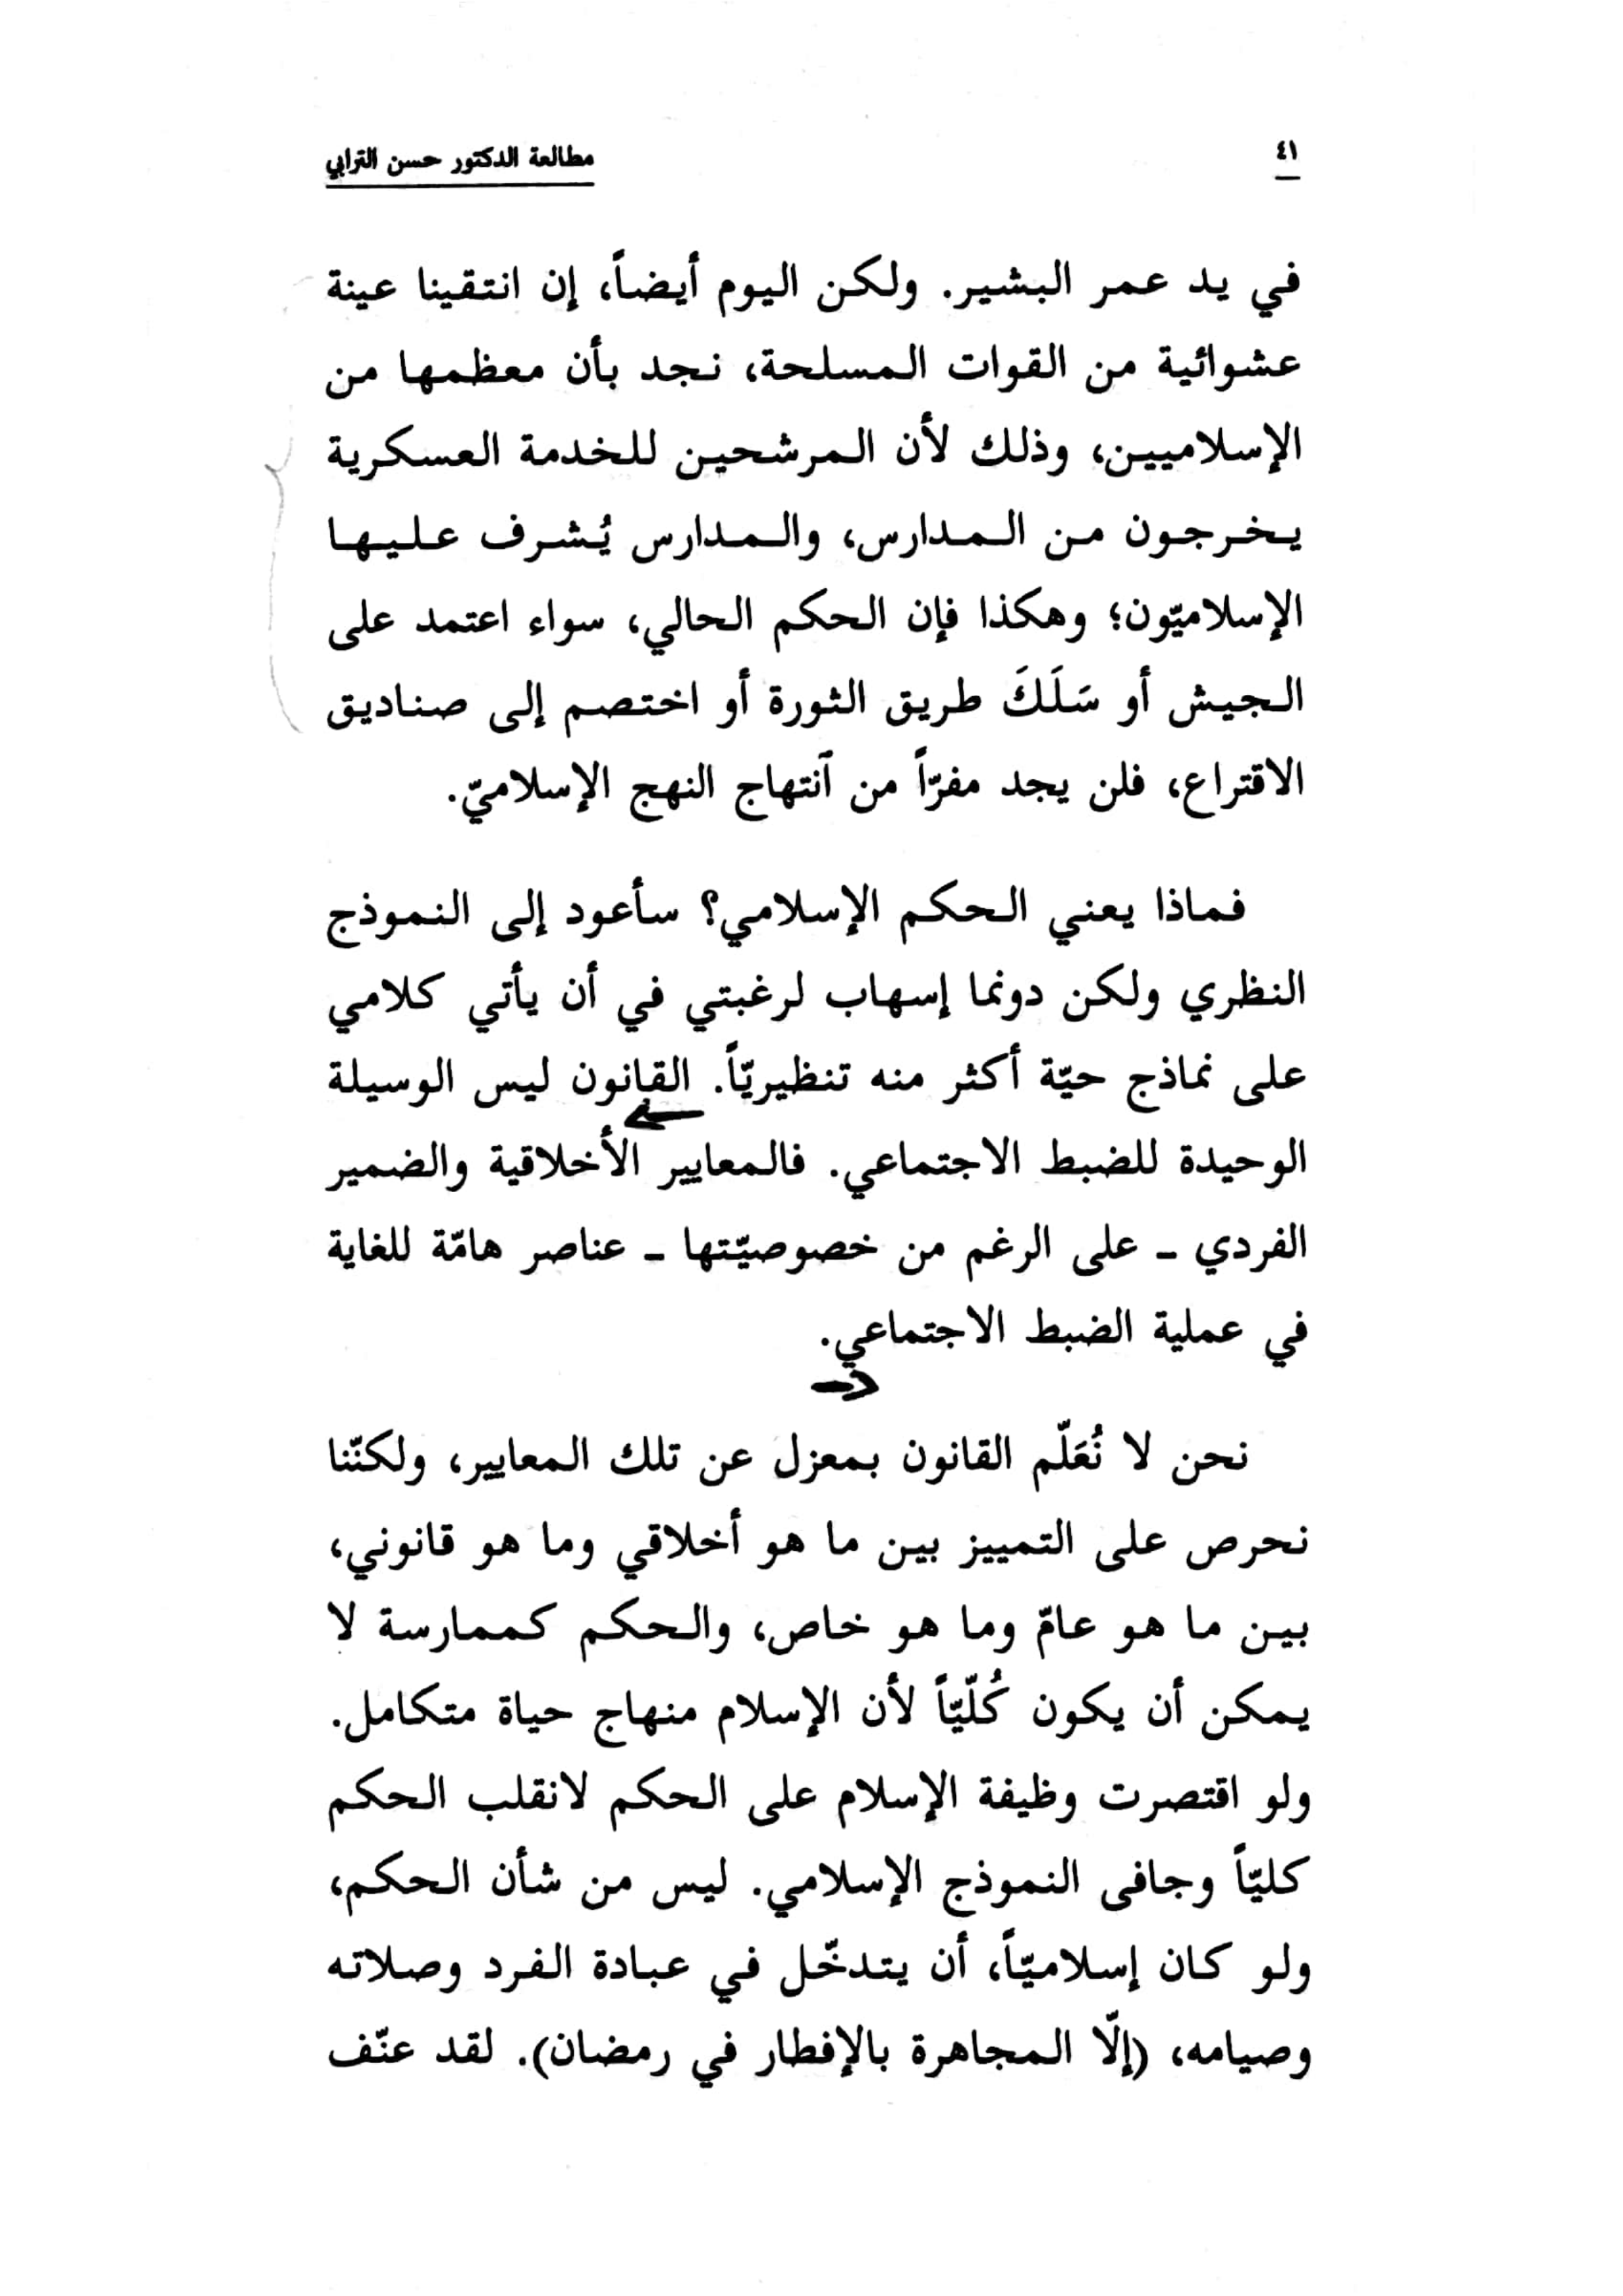 ٤١
مطالعة الدكتور حسن الترابي
في يد عمر البشير. ولكن اليوم أيضاً، إن انتقينا عينة
عشوائية من القوات المسلحة، نجد بأن معظمها من
الإسلاميين، وذلك لأن المرشحين للخدمة العسكرية
يخرجون من المدارس، والمدارس يُشرف عليها
الإسلاميّون؛ وهكذا فإن الحكم الحالي، سواء اعتمد على
الجيش أو سَلَكَ طريق الثورة أو اختصم إلى صناديق
الاقتراع، فلن يجد مفرّاً من آنتهاج النهج الإسلاميّ.
فماذا يعني الحكم الإسلامي؟ سأعود إلى النموذج
النظري ولكن دونما إسهاب لرغبتي في أن يأتي كلامي
على نماذج حيّة أكثر منه تنظيريّاً. القانون ليس الوسيلة
الوحيدة للضبط الاجتماعي. فالمعايير الأخلاقية والضمير
الفردي - على الرغم من خصوصيّتها - عناصر هامّة للغاية
في عملية الضبط الاجتماعي.
نحن لا نُعَلّم القانون بمعزل عن تلك المعايير، ولكنّنا
نحرص على التمييز بين ما هو أخلاقي وما هو قانوني،
بين ما هو عامّ وما هو خاص، والحكم كممارسة لا
يمكن أن يكون كُلّيّاً لأن الإسلام منهاج حياة متكامل.
ولو اقتصرت وظيفة الإسلام على الحكم لانقلب الحكم
كليّاً وجافى النموذج الإسلامي. ليس من شأن الحكم،
ولو كان إسلاميّاً، أن يتدخّل في عبادة الفرد وصلاته
وصيامه، (إلّا المجاهرة بالإفطار في رمضان). لقد عنّف